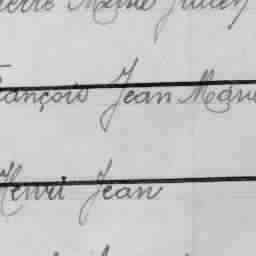 Pierre Marie Julien
François Jean Marie
Henri Jean